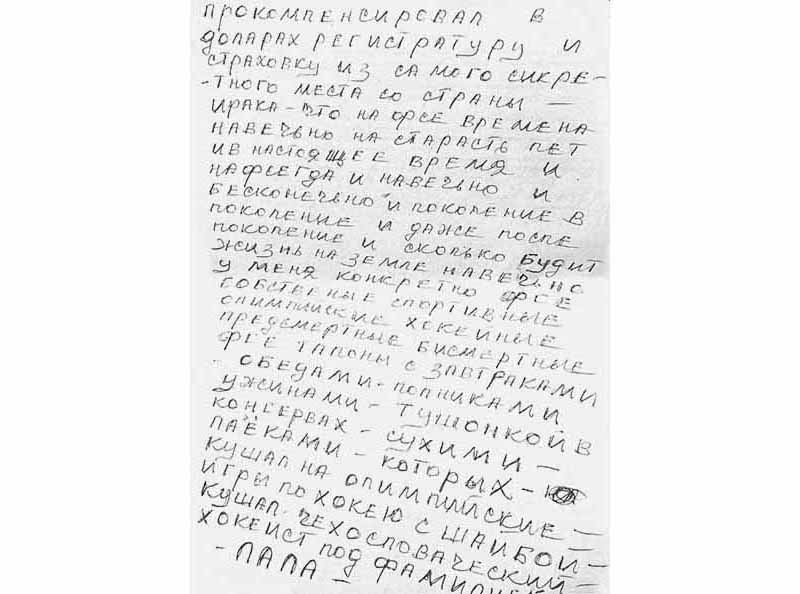 ПРОКОМПЕНСИРОВАЛ В И
ДОЛАРАХ РЕГИСТРАТУРУ И
СТРАХОВКУ ИЗ САМОГО СИКРЕ-
-ТНОГО МЕСТА СО СТРАНЫ —
ИРАКА - ЧТО НА ФСЕ ВРЕМЕНА
НАВЕЧЬНО НА СТАРАСТЬ ЛЕТ
И В НАСТОЯЩЕЕ ВРЕМЯ И
НАФСЕГДА И НАВЕЧЬНО И
БЕСКОНЕЧЬНО И ПОКОЛЕНИЕ В
ПОКОЛЕНИЕ И ДАЖЕ ПОСЛЕ
ПОКОЛЕНИЕ И СКОЛЬКО БУДИТ
ЖИЗНЬ НА ЗЕМЛЕ НАВЕЧЬНО
У МЕНЯ КОНКРЕТНО ФСЕ
СОБСТВЕНЫЕ СПОРТИВНЫЕ
ОЛИМПИЙСКИЕ ХОКЕЙНЫЕ
ПРЕДСМЕРТНЫЕ БИСМЕРТНЫЕ
ФСЕ ТАЛОНЫ С ЗАВТРАКАМИ
- ОБЕДАМИ - ПОЛНИКАМИ
УЖИНАМИ - ТУШОНКОЙ В
КОНСЕРВАХ - СУХИМИ —
ПАЁКАМИ - КОТОРЫХ -
КУШАЛ НА ОЛИМПИЙСКИЕ —
ИГРЫ ПО ХОКЕЮ С ШАЙБОЙ —
КУШАЛ ЧЕХОСЛОВАЧЕСКИЙ —
ХОКЕИСТ ПОД
- ЛАЛА -